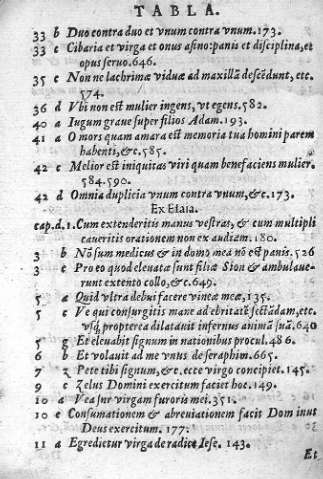 TABLA.
33 b Duo contra duo et vnum contra vnum. 173.
33 c Cibaria et virga et onus asino: panis et disciplina, et
opus seruo. 646.
35 c Non ne lachrimæ viduæ ad maxillã descẽdunt, etc.
574.
36 d Vbi non est mulier ingens, vt egens. 582.
40 a Iugum graue super filios Adam. 193.
41 a O mors quam amara est memoria tua homini pacem
habenti, &c. 585.
42 c Melior est iniquitas viri quam benefaciens mulier.
584. 590.
42 d Omnia duplicia vnum contra vnum, &c. 173.
Ex Esaia.
cap. d. 1. Cum extenderitis manus vestras, & cum multipli
caueritis orationem non exaudiam. 180.
3 b Nõ sum medicus & in domo mea nõ est panis. 526
3 c Pro eo quod eleuatæ sunt filiæ Sion & ambulaue-
runt extento collo, &c. 649.
5 a Quid vltra debui facere vineæ meæ, 135.
5 c Ve qui consurgitis mane ad ebrietatẽ sectãdam, etc.
vsq; propterea dilatauit infernus animã suã. 640
5 g Et eleuabit signum in nationibus procul. 486.
6 b Et volauit ad me vnus de seraphim. 665.
7 z Pete tibi signum, &c. ecce virgo concipiet. 145.
9 c Zelus Domini exercitum faciet hoc. 149.
10 a Vea sur virgam furoris mei. 351.
10 e Consumationem & abreuiationem facit Dominus
Deus exercitum. 177.
11 a Egredietur virga de radice Iese. 143.
Et